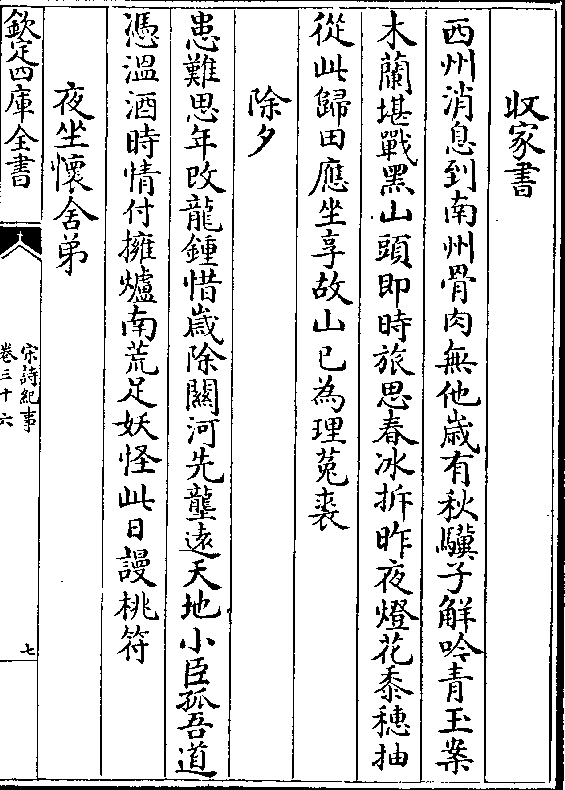 収家書
西州消息到南州骨肉無他歳有秋驥子解吟青玉案
木蘭堪戰黑山頭即時旅思春冰拆昨夜燈花黍穗抽
從此歸田應坐享故山已為理菟裘
除夕
患難思年改龍鍾惜嵗除關河先壟逺天地小臣孤吾道
憑溫酒時情付擁爐南荒足妖怪此日謾桃符
夜坐懷舍弟
欽定四庫全書
宋詩紀事
卷三十六
七